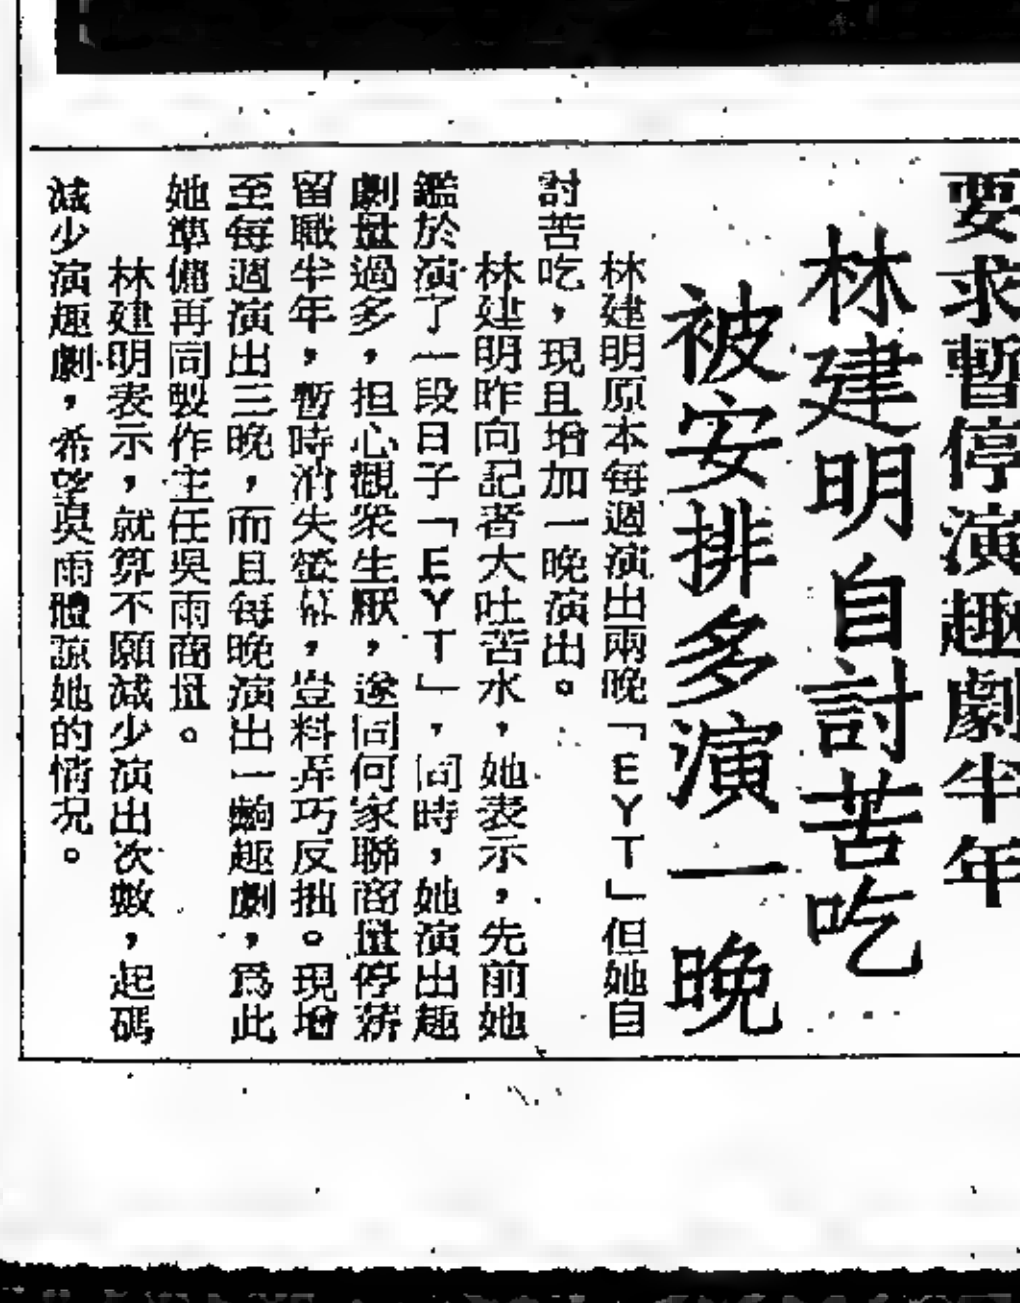 要求暫停演趣劇半年
林建明自討苦吃
被安排多演一晚
林建明原本每週演出兩晚「EYT」但她自
討苦吃，現且增加一晚演出。
林建明昨向記者大吐苦水，她表示，先前她
鑑於演了一段日子「EYT」，同時，她演出趣
劇量過多，担心觀眾生厭，遂向何家聯商量停薪
留職半年，暫時消失螢幕，豈料弄巧反拙。現增
至每週演出三晚，而且每晚演出一齣趣劇，爲此
她準備再同製作主任吳雨商量。
林建明表示，就算不願減少演出次數，起碼
減少演趣劇，希望吳雨體諒她的情况。